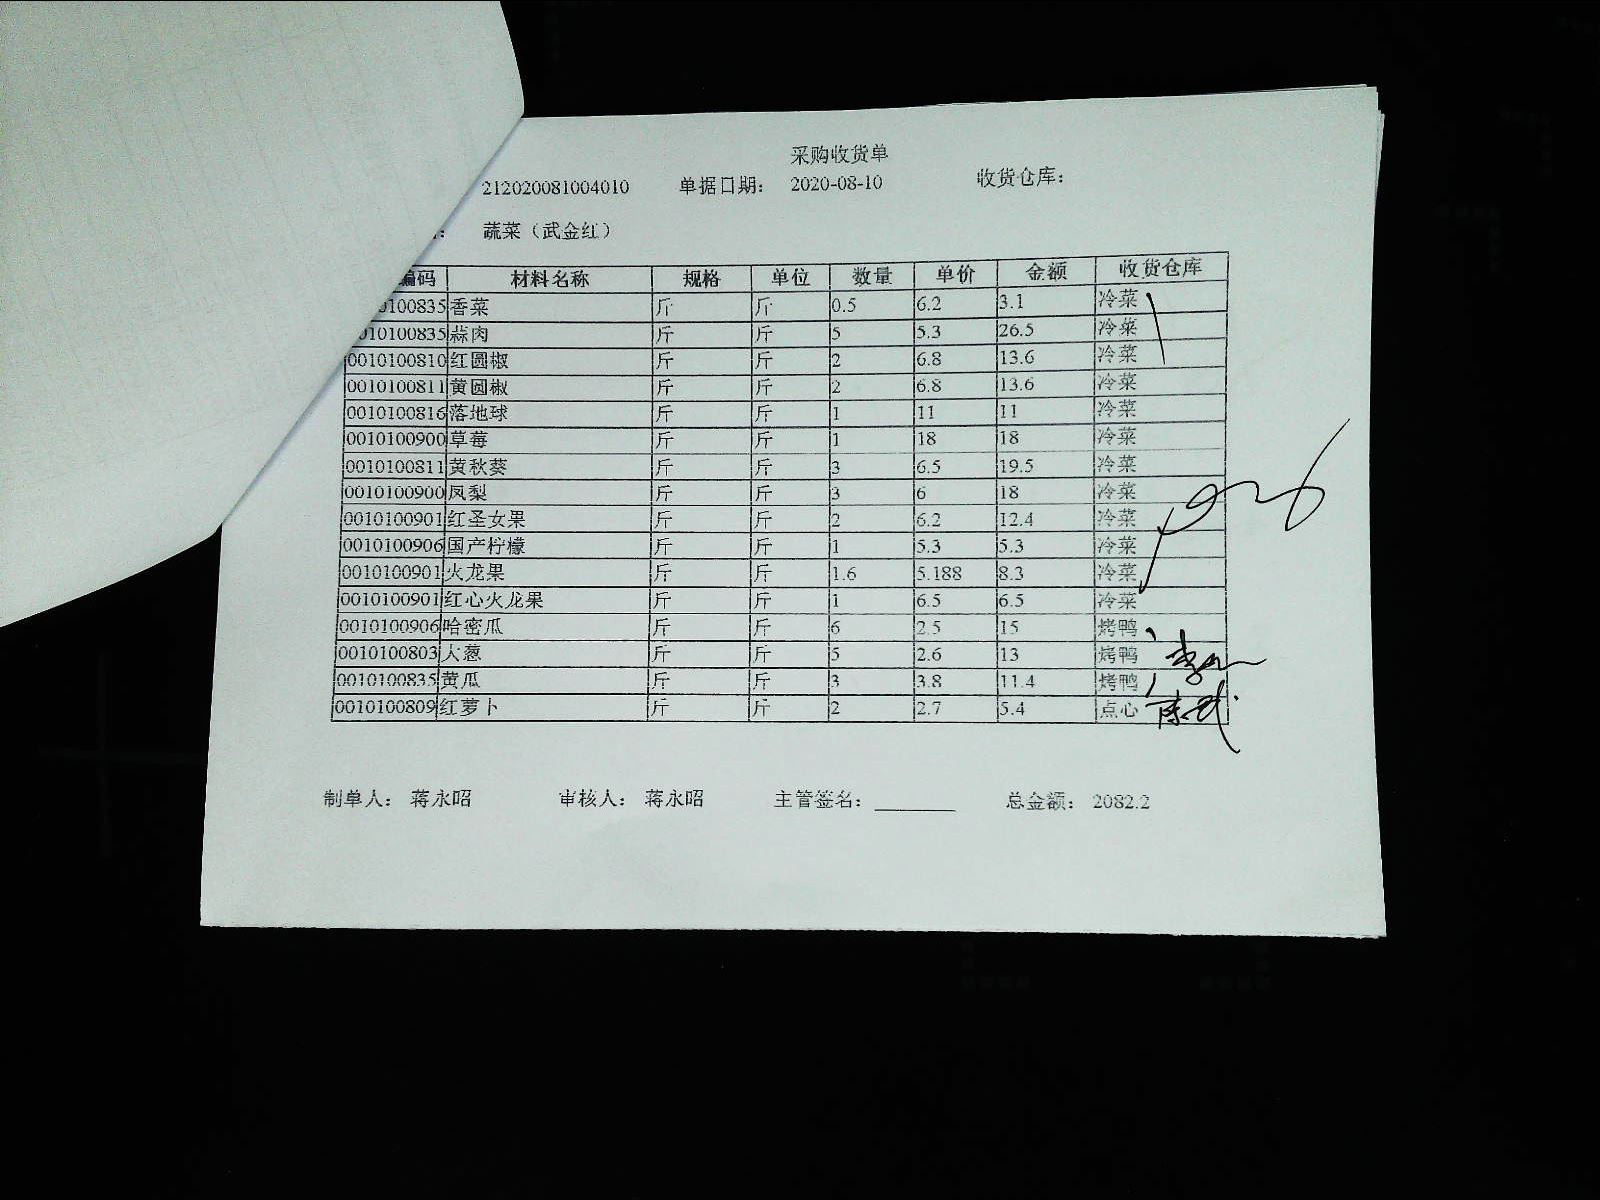 采购收货单
212020081004010 单据日期: 2020-08-10 收货仓库:
: 蔬菜（武金红）
编码 材料名称 规格 单位 数量 单价 金额 收货仓库
0100835 香菜 斤 斤 0.5 6.2 3.1 冷菜
010100835 蒜肉 斤 斤 5 5.3 26.5 冷菜
0010100810 红圆椒 斤 斤 2 6.8 13.6 冷菜
0010100811 黄圆椒 斤 斤 2 6.8 13.6 冷菜
0010100816 落地球 斤 斤 1 11 11 冷菜
0010100900 草莓 斤 斤 1 18 18 冷菜
0010100811 黄秋葵 斤 斤 3 6.5 19.5 冷菜
0010100900 凤梨 斤 斤 3 6 18 冷菜
0010100901 红圣女果 斤 斤 2 6.2 12.4 冷菜
0010100906 国产柠檬 斤 斤 1 5.3 5.3 冷菜
0010100901 火龙果 斤 斤 1.6 5.188 8.3 冷菜
0010100901 红心火龙果 斤 斤 1 6.5 6.5 冷菜
0010100906 哈密瓜 斤 斤 6 2.5 15 烤鸭
0010100803 大葱 斤 斤 5 2.6 13 烤鸭
0010100835 黄瓜 斤 斤 3 3.8 11.4 烤鸭
0010100809 红萝卜 斤 斤 2 2.7 5.4 点心
制单人: 蒋永昭 审核人: 蒋永昭 主管签名: 总金额: 2082.2